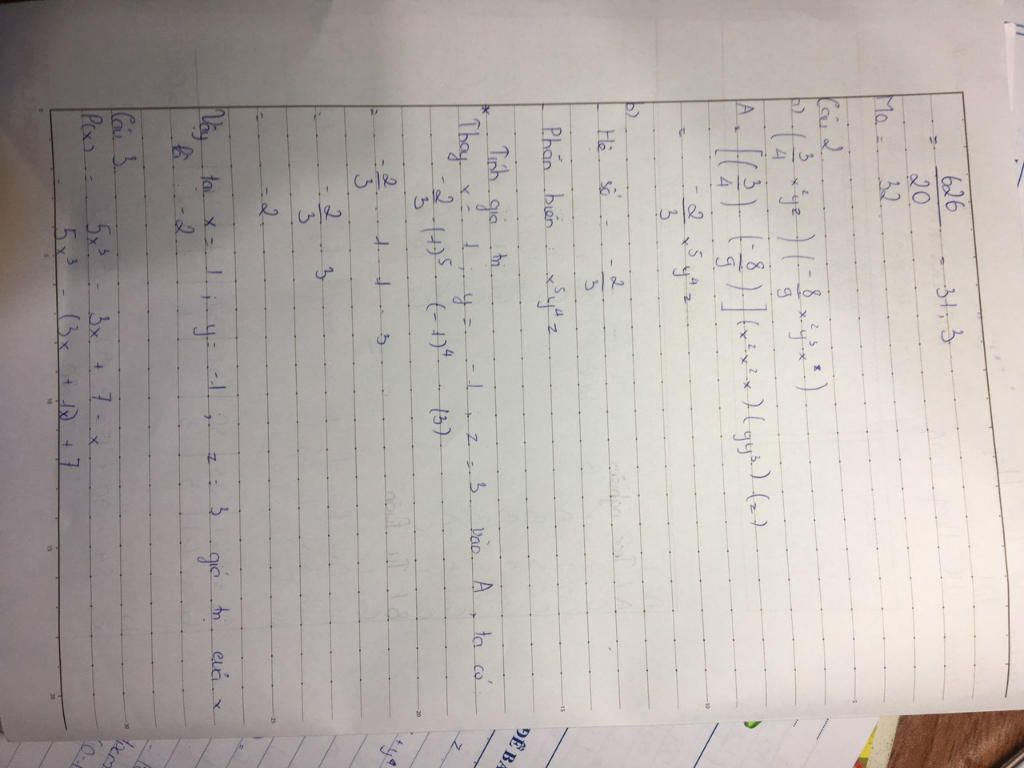 = 626/20 = 31,3
Mo = 32
Câu 2
a) (3/4 x²yz) (-8/9 x²y³x)
A = [(3/4) (-8/9)] (x²x²x) (yy³) (z)
= -2/3 x⁵y⁴z
b)
Hệ số = -2/3
Phần biến : x⁵y⁴z
* Tính giá trị
Thay x = 1, y = -1, z = 3 vào A, ta có
-2/3 (1)⁵ (-1)⁴ . (3)
= -2/3 . 1 . 1 . 3
= -2/3 . 3
= -2
Vậy tại x = 1, y = -1, z = 3 giá trị của x
là -2
Câu 3
P(x) = 5x³ - 3x + 7 = x
5x³ - (3x + 1x) + 7
ĐỀ BA